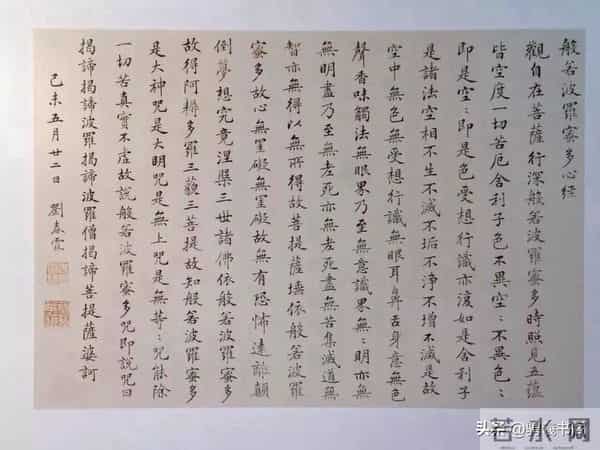 般若波羅蜜多心經
觀自在菩薩行深般若波羅蜜多時照見五蘊
皆空度一切苦厄舍利子色不異空〻不異色〻
即是空〻即是色受想行識亦復如是舍利子
是諸法空相不生不滅不垢不淨不增不減是故
空中無色無受想行識無眼耳鼻舌身意無色
聲香味觸法無眼界乃至無意識界無〻明亦無
無明盡乃至無老死亦無老死盡無苦集滅道無
智亦無得以無所得故菩提薩埵依般若波羅
蜜多故心無罣礙無罣礙故無有恐怖遠離顛
倒夢想究竟涅槃三世諸佛依般若波羅蜜多
故得阿耨多羅三藐三菩提故知般若波羅蜜多
是大神咒是大明咒是無上咒是無等〻咒能除
一切苦真實不虛故說般若波羅蜜多咒即說咒曰
揭諦揭諦波羅揭諦波羅僧揭諦菩提薩婆訶
己未五月廿二日 劉春霖
头条
若水网